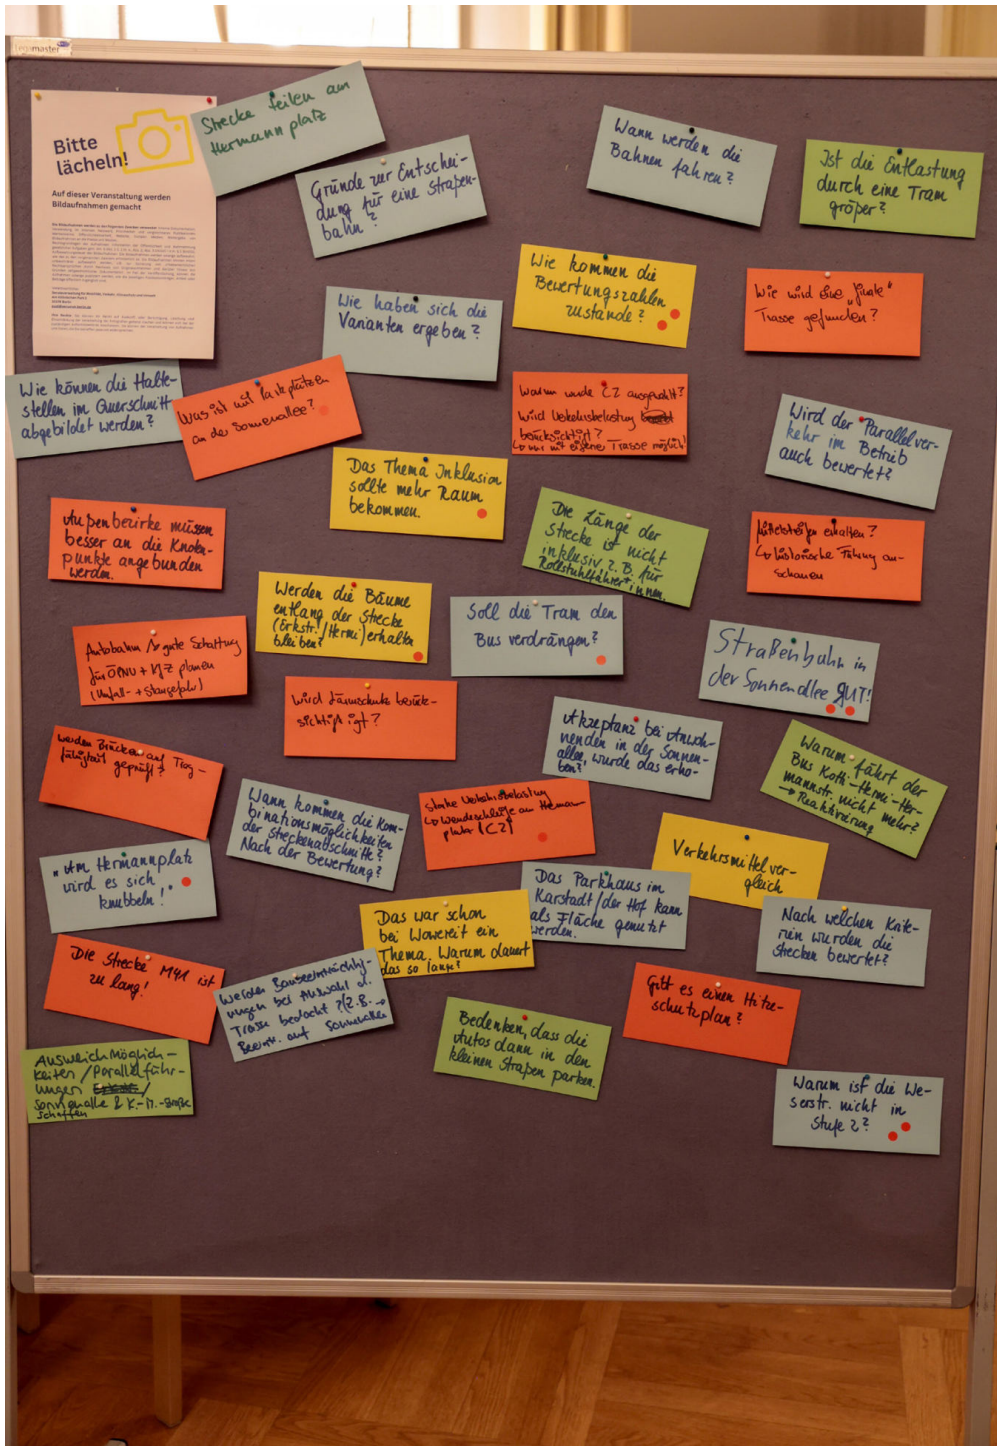 legamaster
Bitte
lächeln!
Auf dieser Veranstaltung werden
Bildaufnahmen gemacht
Strecke teilen am
Hermannplatz
Gründe zur Entschei-
dung für eine Straßen-
bahn?
Wann werden die
Bahnen fahren?
Ist die Entlastung
durch eine Tram
größer?
Wie haben sich die
Varianten ergeben?
Wie kommen die
Bewertungszahlen
zustande?
Wie wird eine "finale"
Trasse gefunden?
Wie können die Halte-
stellen im Querschnitt
abgebildet werden?
Was ist mit Parkplätzen
an der Sonnenallee?
Warum wurde C2 ausgewählt?
Wird Verkehrsbelastung
berücksichtigt?
↳ nur mit eigener Trasse möglich!
Wird der Parallelver-
kehr im Betrieb
auch bewertet?
Das Thema Inklusion
sollte mehr Raum
bekommen.
Außenbezirke müssen
besser an die Knoten-
punkte angebunden
werden.
Die Länge der
Strecke ist nicht
inklusiv z.B. für
Rollstuhlfahrer*innen.
Mittelstreifen erhalten?
↳ historische Führung an-
schauen
Werden die Bäume
entlang der Strecke
(Erkstr./Hermi) erhalten
bleiben?
Soll die Tram den
Bus verdrängen?
Autobahn gute Schaltung
für ÖPNV + KFZ planen
(Unfall- + Staugefahr)
Straßenbahn in
der Sonnenallee GUT!
Wird Lärmschutz berück-
sichtigt?
Akzeptanz bei Anwoh-
nenden in der Sonnen-
allee, wurde das erho-
ben?
Werden Brücken auf Trag-
fähigkeit geprüft?
Warum fährt der
Bus Kotti-Hermi-Her-
mannstr. nicht mehr?
→ Reaktivierung
Wann kommen die Kom-
binationsmöglichkeiten
der Streckenabschnitte?
Nach der Bewertung?
starke Verkehrsbelastung
↳ Wendeschleife am Hermann-
platz (C2)
Verkehrsmittelver-
gleich
"Am Hermannplatz
wird es sich
knubbeln!"
Das Parkhaus im
Karstadt/der Hof kann
als Fläche genutzt
werden.
Das war schon
bei Wowereit ein
Thema. Warum dauert
das so lange?
Nach welchen Krite-
rien wurden die
Strecken bewertet?
Die Strecke M41 ist
zu lang!
Werden Baubeeinträchtig-
ungen bei Auswahl d.
Trasse bedacht? (z.B. →
Beeintr. auf Sonnenallee
Gibt es einen Hitze-
schutzplan?
Bedenken, dass die
Autos dann in den
kleinen Straßen parken.
Ausweichmöglich-
keiten / Parallelführ-
ungen /
Sonnenallee & K.-M.-Straße
schaffen
Warum ist die We-
serstr. nicht in
Stufe 2?